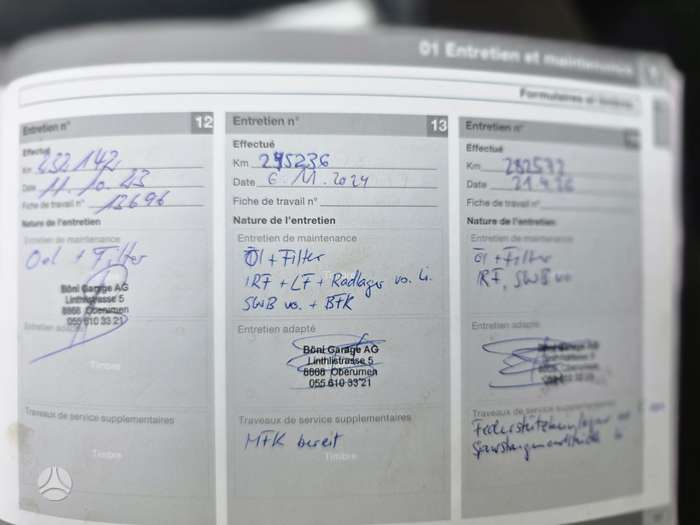 01 Entretien et maintenance
Formulaires et timbres
Entretien n° 12
Effectué
Km 232142
Date 11.10.23
Fiche de travail n° 13696
Nature de l'entretien
Entretien de maintenance
Oel + Filter
Böni Garage AG
Linthlistrasse 5
8868 Oberurnen
055 610 33 21
Entretien adapté
Timbre
Travaux de service supplémentaires
Timbre
Entretien n° 13
Effectué
Km 245236
Date 6.11.2024
Fiche de travail n°
Nature de l'entretien
Entretien de maintenance
Öl + Filter
IRF + LF + Radlager vo. li.
SWB vo. + BFK
Entretien adapté
Böni Garage AG
Linthlistrasse 5
8868 Oberurnen
055 610 33 21
Traveaux de service supplémentaires
MFK bereit
Timbre
Entretien n°
Effectué
Km 252572
Date 21.4.26
Fiche de travail n°
Nature de l'entretien
Entretien de maintenance
Öl + Filter
IRF, SWB vo
Entretien adapté
Traveaux de service supplémentaires